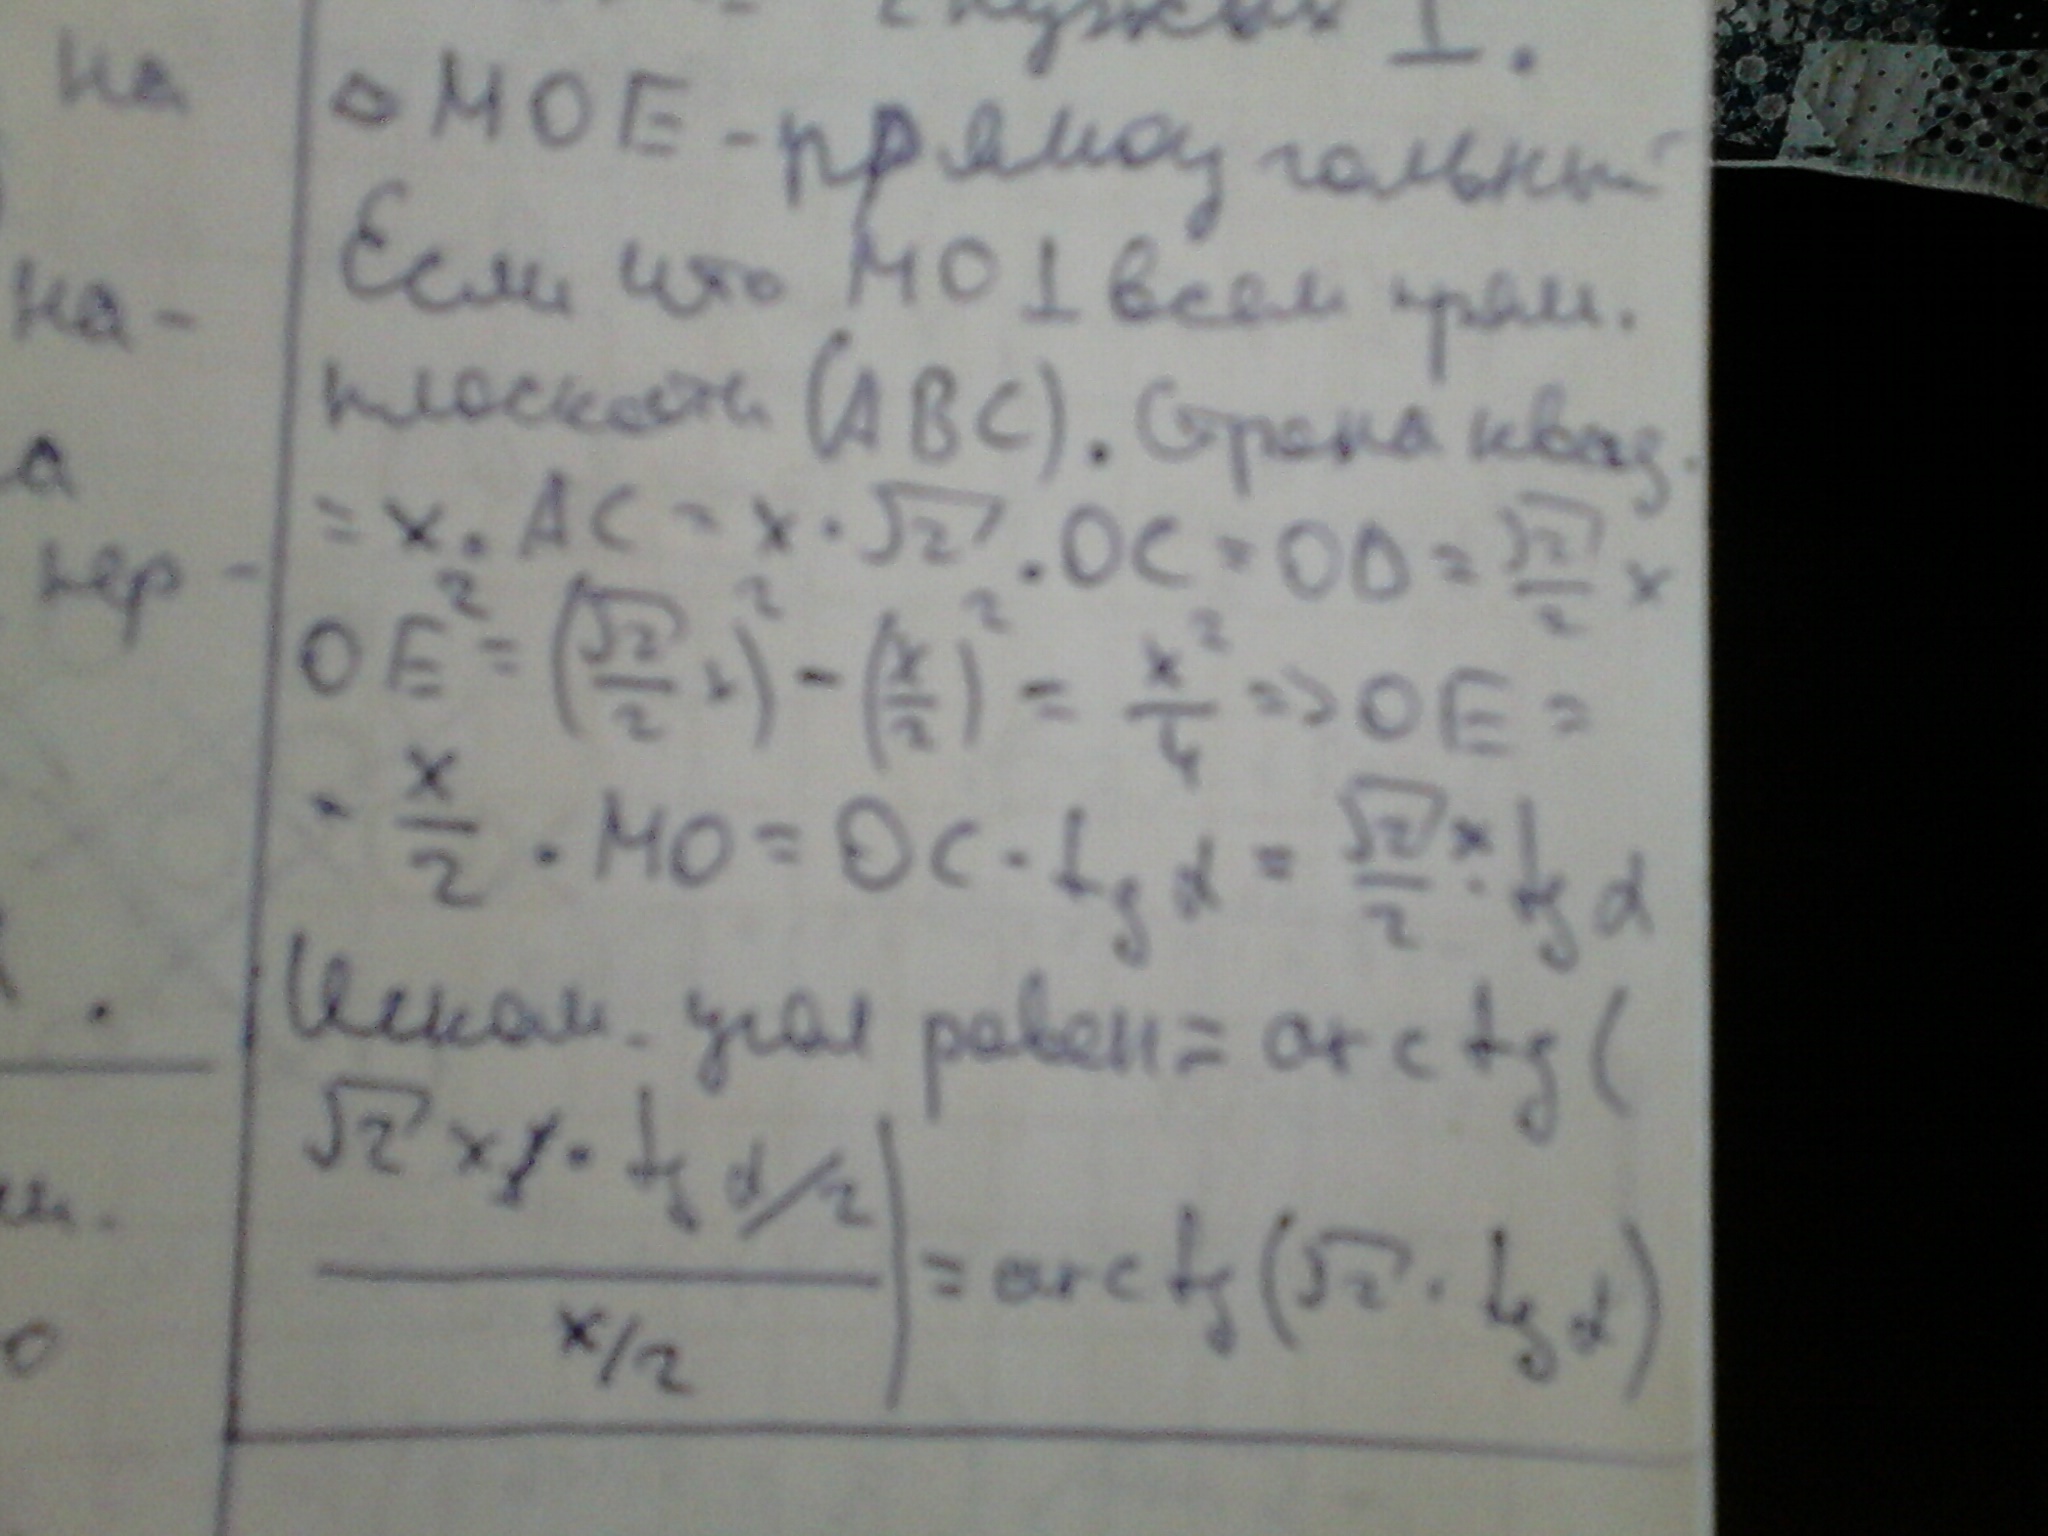 на
на-
а
пер-
служых ⊥.
△MOE - прямоугольный
Если что MO ⊥ всем прям.
плоскости (ABC). Строна квад.
= x. AC = x·√2. OC = OD = √2/2 x
OE² = (√2/2 x)² - (x/2)² = x²/4 => OE =
= x/2. MO = OC · tg α = √2/2 x · tg α
Иском. угол равен = arctg (
√2 x · tg α/2 / x/2) = arctg (√2 · tg α)
о